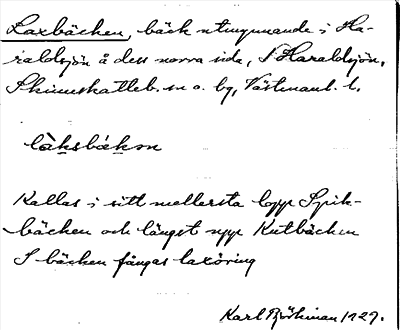 Laxbäcken, bäck utmynnande i Ha-
raldsjön å dess norra sida, S Haraldsjön,
Skinnskatteb. sn o. bg, Västmanl. l.
làksbäkɘn
Kallas i sitt mellersta lopp Spik-
bäcken och längst upp Kutbäcken
I bäcken fångas laxöring
Karl Björkman 1929.